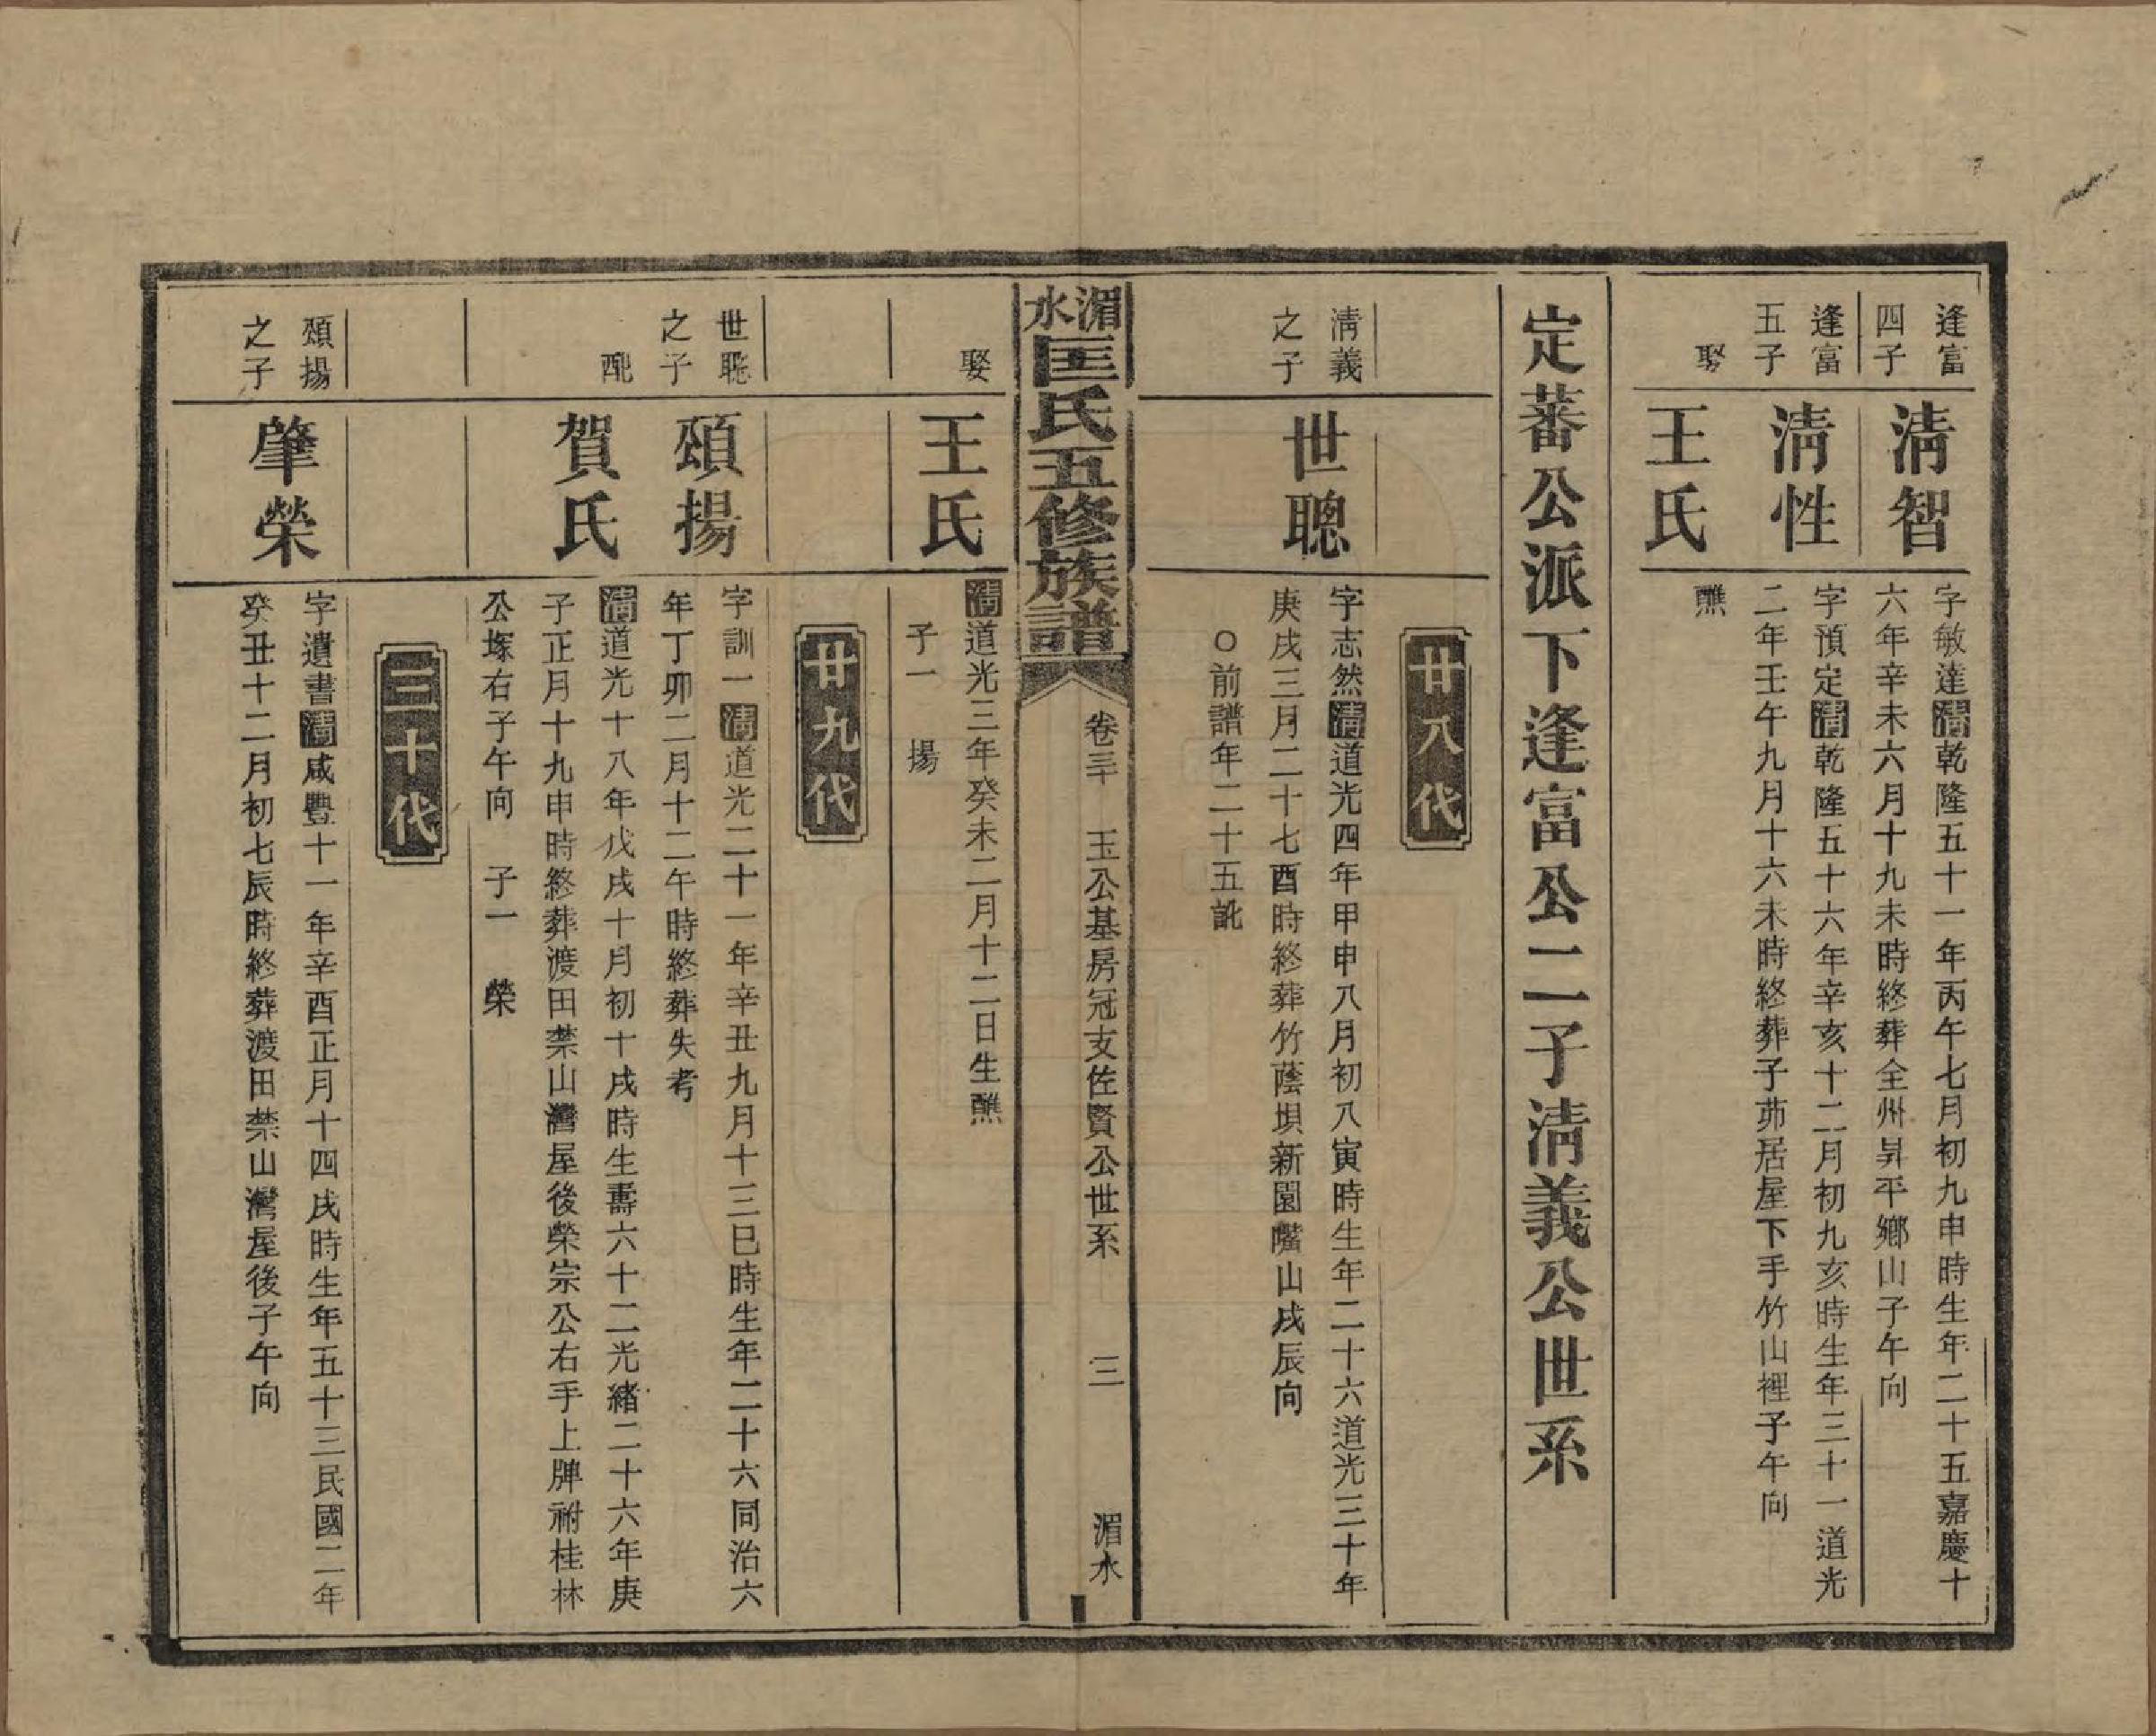 逢富
四子
清智
字敏達清乾隆五十一年丙午七月初九申時生年二十五嘉慶十
六年辛未六月十九未時終葬全州昇平鄉山子午向
逢富
五子
清性
字預定清乾隆五十六年辛亥十二月初九亥時生年三十一道光
二年壬午九月十六未時終葬子茆居屋下手竹山裡子午向
娶
王氏
醮
定蕃公派下逢富公二子清義公世系
廿八代
清義
之子
世聰
字志然清道光四年甲申八月初八寅時生年二十六道光三十年
庚戌三月二十七酉時終葬竹蔭垻新園嘴山戌辰向
○前譜年二十五訛
湄水匡氏五修族譜
卷三十 玉公基房冠支佐賢公世系 三 湄水
娶
王氏
清道光三年癸未二月十二日生醮
子一 揚
廿九代
世聰
之子
頌揚
字訓一清道光二十一年辛丑九月十三巳時生年二十六同治六
年丁卯二月十二午時終葬失考
配
賀氏
清道光十八年戊戌十月初十戌時生壽六十二光緒二十六年庚
子正月十九申時終葬渡田禁山灣屋後榮宗公右手上牌祔桂林
公塚右子午向 子一 榮
三十代
頌揚
之子
肇榮
字遺書清咸豐十一年辛酉正月十四戌時生年五十三民國二年
癸丑十二月初七辰時終葬渡田禁山灣屋後子午向